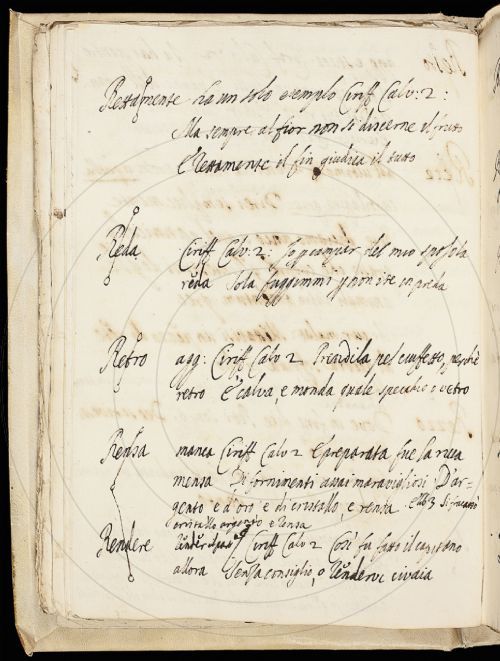 Rettamente ha un solo esempio Ciriff Calv: 2:
Ma sempre al fior non si discerne il frutto
E rettamente il fin giudica il tutto
Reda Ciriff Calv: 2: Io p campar del mio sposo la
reda Sola fuggimmi p non ire in preda
Retro agg: Ciriff Calv 2 Prendila pel ciuffetto, perchè
retro E' calva, e monda quale specchio o vetro
Rensa manca Ciriff Calv 2 E preparata fue la ricca
mensa Di fornimenti assai maravigliosi D'ar-
gento e d'oro, e di cristallo, e rensa. e lib 3 Si
cristallo argento e rensa
Rendere Ciriff Calv 2 Così fu fatto il capitano
allora Senza consiglio, o rendervi civaia